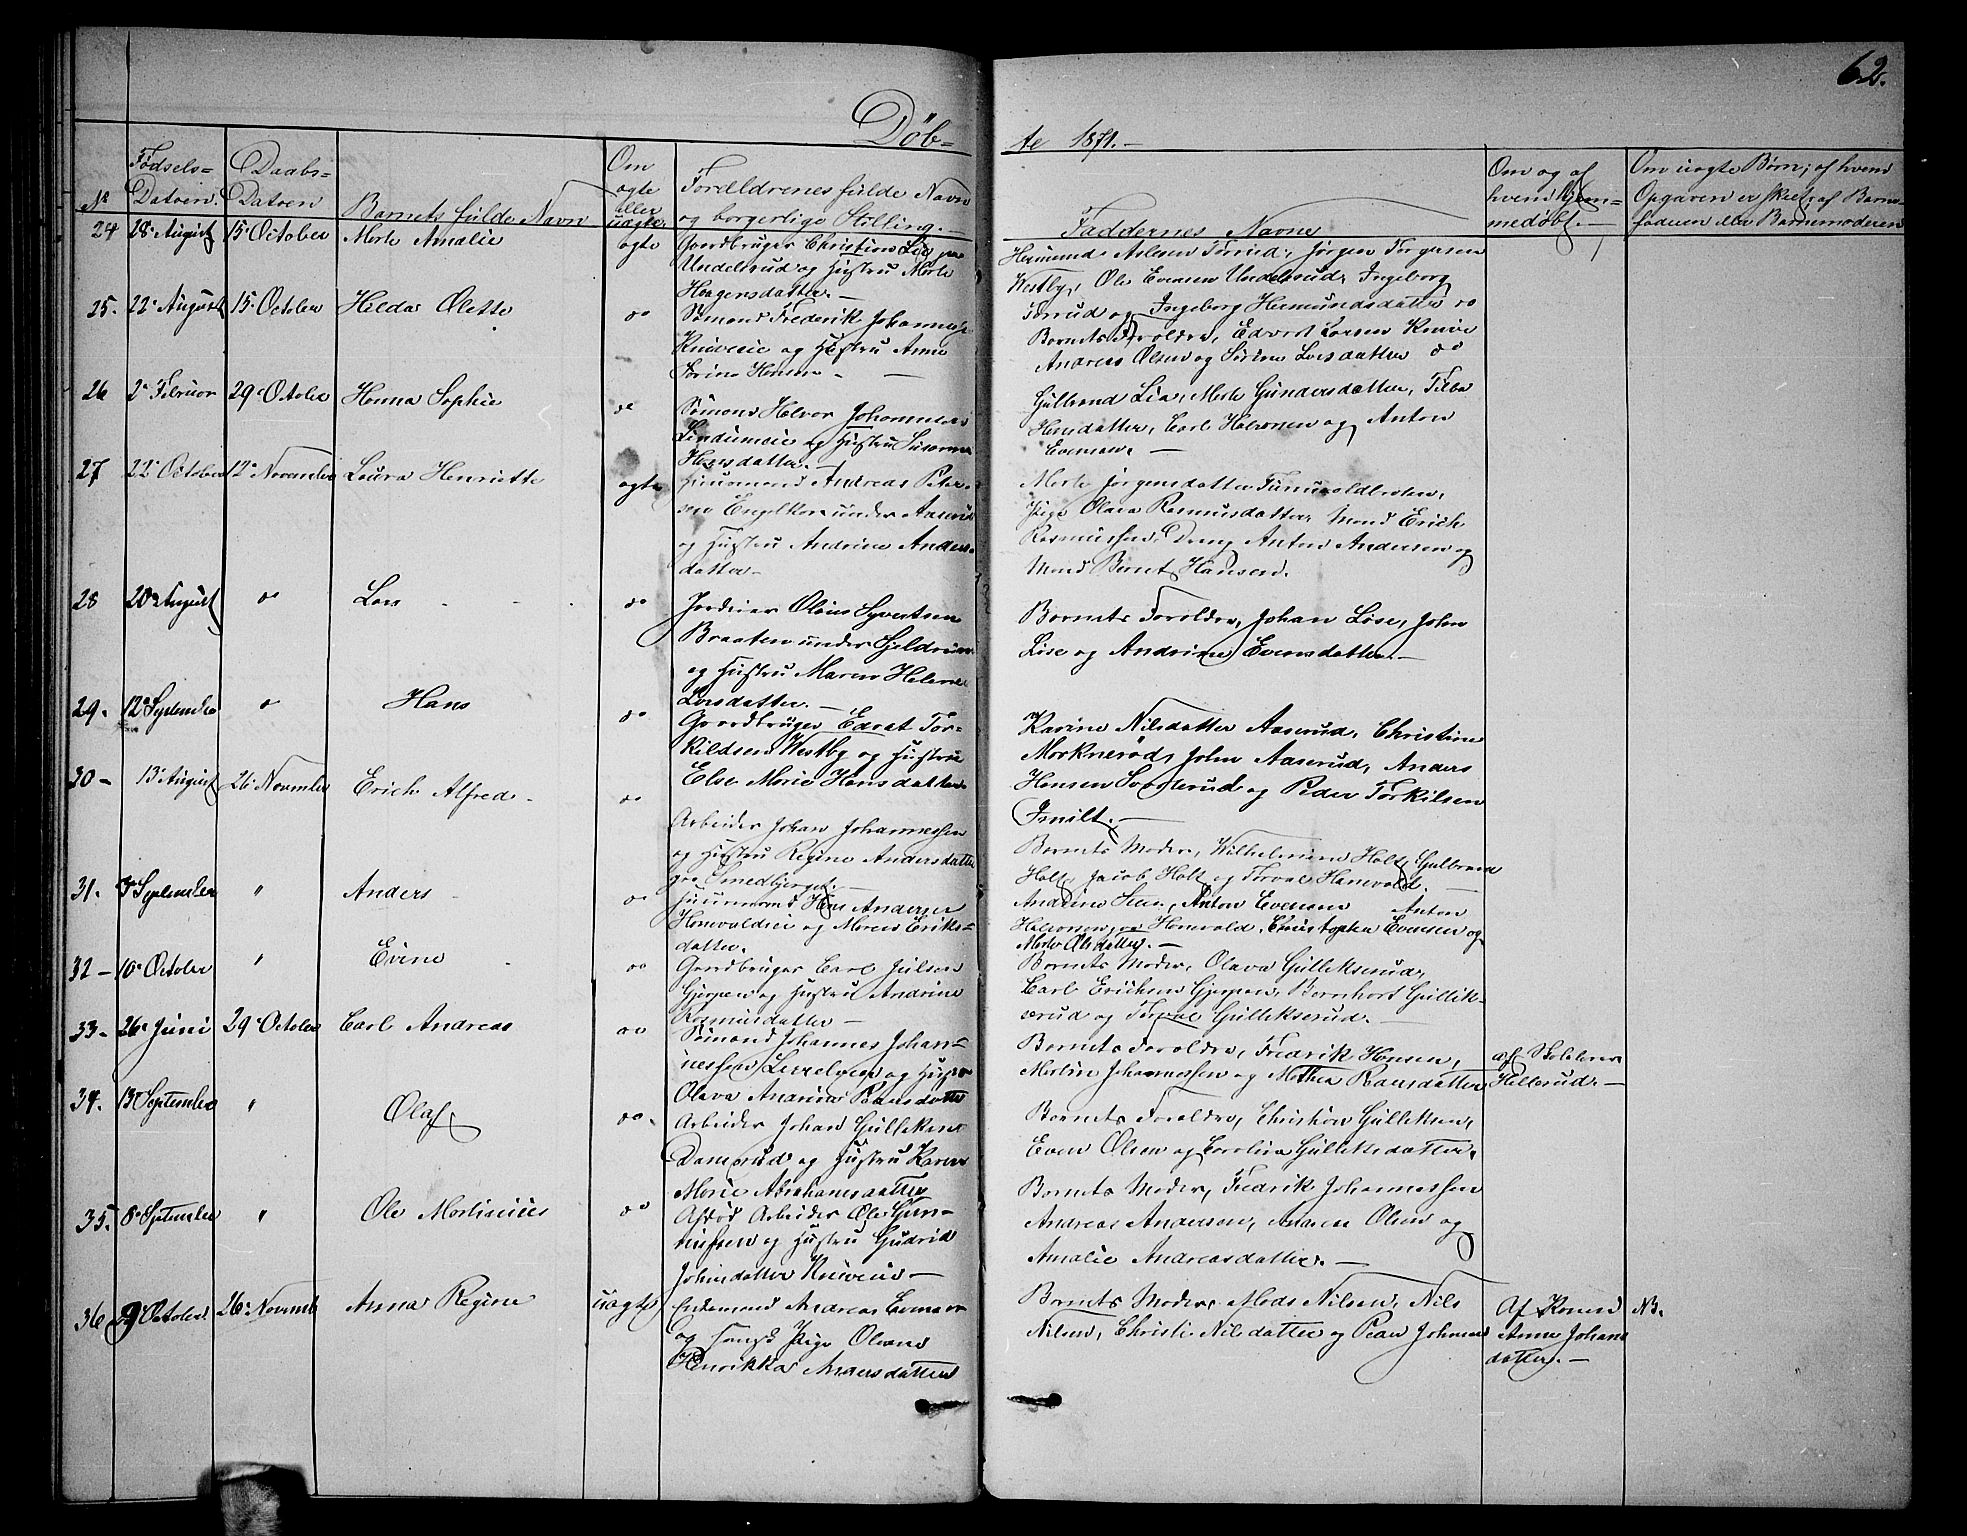 62.
Døb-
te 1871.-
No
Fødsels-
Datoen.
Daabs-
Datoen
Barnets fulde Navn
Om
ægte
eller
uægte.
Forældrenes fulde Navn
og borgerlige Stilling.
Faddernes Navne
Om og af
hvem hjem-
medøbt.
Om uægte Børn; af hvem
Opgaven er skeet, af Barne-
faderen eller Barnemoderen
24 18 August 15 October Marte Amalie ægte
Gaardbruger Christian
Undelsrud og Hustru Marte
Haagensdatter.
Hermund Aslesen Torrud, Jørgen Torgersen
Westby, Ole Evensen Undelsrud, Ingeborg
Torrud og Ingeborg Hermundsdatter
25. 22 August 15. October Hilda Olette do
Sømand Frederik Johannes
og Hustru Anne
Hansen
Barnets Foreldre, Edvard Larsen Knive
Andreas Olsen og Sørine Larsdatter do
26 2 Februar 29 October Hanna Sophie do
Sømand Halvor Johannesen
og Hustru Susanna
Hansdatter.
Gulbrand Lia, Marte Gundersdatter,
Hansdatter, Carl Halvorsen og Anton
Evensen.
27 22 October 12 November Laura Henriette ægte
Huusmand Andreas Peter-
sen under Aaserud
og Hustru Andrine Anders-
datter
Marte Jørgensdatter
Pige Olava Rasmusdatter, Mand Erich
Rasmussen, Dreng Anton Andersen og
Mand Bernt Hansen.
28 20 August do Lars do
Olaus Syvertsen
Braaten under
og Hustru Maren Helene
Larsdatter.
Barnets Foreldre, Johan Løse, John
Løse og Andrine Evensdatter.
29. 12 September do Hans do
Gaardbruger Edvat Tor-
kildsen Westby og Hustru
Else Marie Hansdatter
Karine Nilsdatter Aaserud, Christine
John Aaserud, Anders
Hansen og Peder Torkilsen
30 13 August 26 November Erich Alfred do
Arbeider Johan Johannessen
og Hustru Regine Andersdatter
Smedbjerget.
Barnets Moder, Wilhelmine Holt, Gulbrand
Holt, Jacob Holt og Torval Hanevold.
31. September " Anders do
Huusmand Hans Andersen
og Maren Eriks-
datter.
Andrine, Anton Evensen Anton
Halvorsen Hanevold, Christopher Evensen og
Marte Olsdatter.
32 10 October " Evine do
Gaardbruger Carl Julsen
Gjerpen og Hustru Andrine
Rasmusdatter
Barnets Moder, Olava Gullekserud,
Carl Erichsen Gjerpen, Bernhart Gullik-
serud og Torval Gullekserud.
33 26 Juni 29 October Carl Andreas do
Sømand Johannes Johan-
nessen og Hustru
Olava Andrine Hansdatter
Barnets Foreldre, Fredrik Hansen,
Martin Johannessen og Mathea Hansdatter
af Skolelærer
Hellerud.
34. 13 September " Olaf do
Arbeider Johan Gulliksen
Damsrud og Hustru Karen
Marie Abrahamsdatter
Barnets Foreldre, Christian Gulleksen,
Even Olsen og Carolina Gulliksdatter.
35. 8 September " Ole Martinius do
Afdød Arbeider Ole Gun-
og Hustru Gudrid
Johnsdatter
Barnets Moder, Fredrik Johannessen
Andreas Andersen, Olsen og
Amalie Andreasdatter.
36 9 October 26 Novemb Anna Regine uægte
Enkemand Andreas Evensen
og Pige
Henrikka Andersdatter
Barnets Moder, Mads Nilsen, Nils
Nilsen, Christi Nilsdatter og
Af Konen
Anna Johans
datter.
NB.